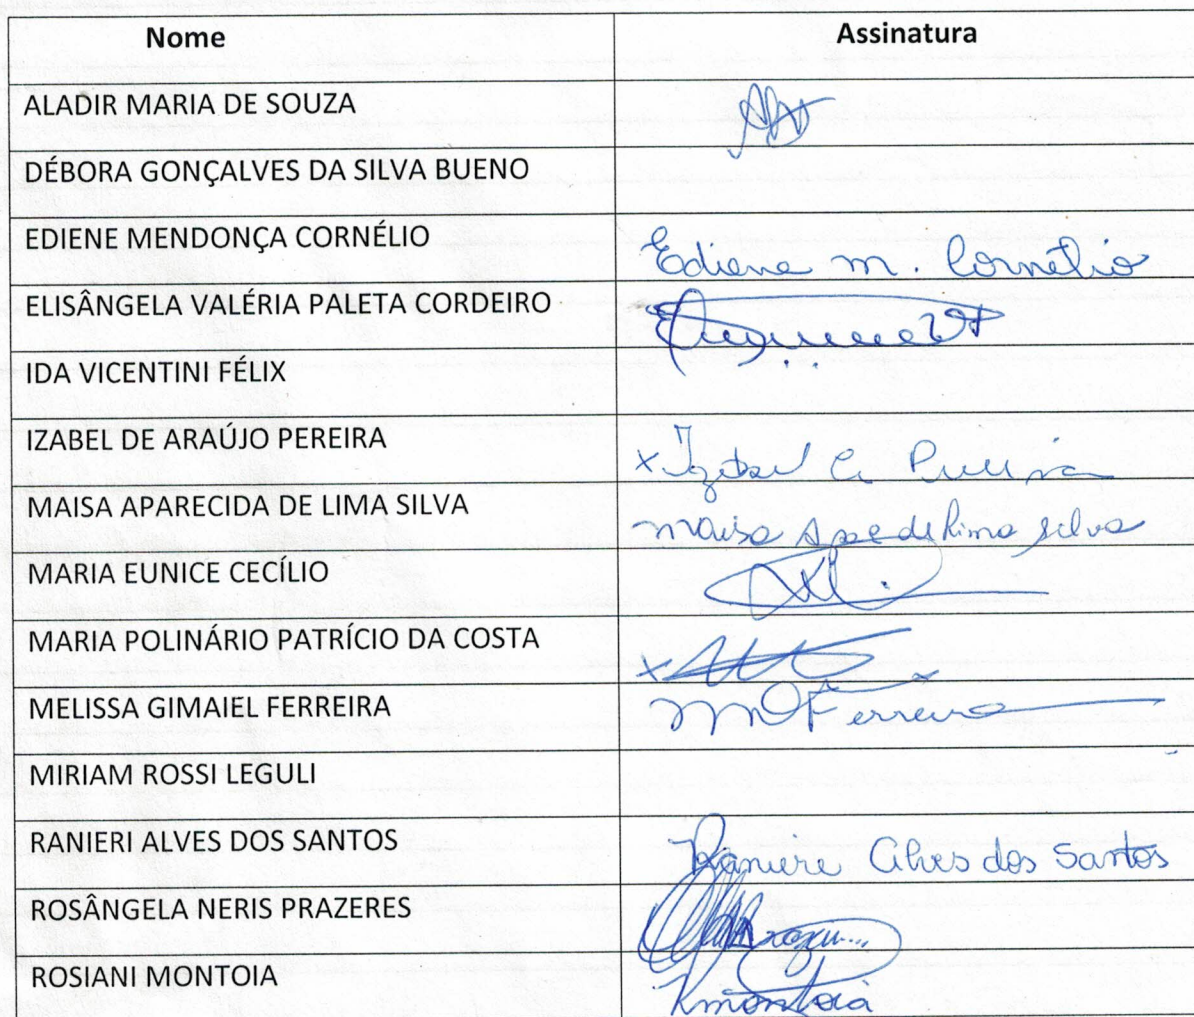 Nome Assinatura
ALADIR MARIA DE SOUZA
DÉBORA GONÇALVES DA SILVA BUENO
EDIENE MENDONÇA CORNÉLIO Ediene m. Cornélio
ELISÂNGELA VALÉRIA PALETA CORDEIRO
IDA VICENTINI FÉLIX
IZABEL DE ARAÚJO PEREIRA x Izabel
MAISA APARECIDA DE LIMA SILVA maisa Apae de Lima Silva
MARIA EUNICE CECÍLIO
MARIA POLINÁRIO PATRÍCIO DA COSTA x
MELISSA GIMAIEL FERREIRA Ferreira
MIRIAM ROSSI LEGULI
RANIERI ALVES DOS SANTOS Ranieri Alves dos Santos
ROSÂNGELA NERIS PRAZERES
ROSIANI MONTOIA Rmontoia